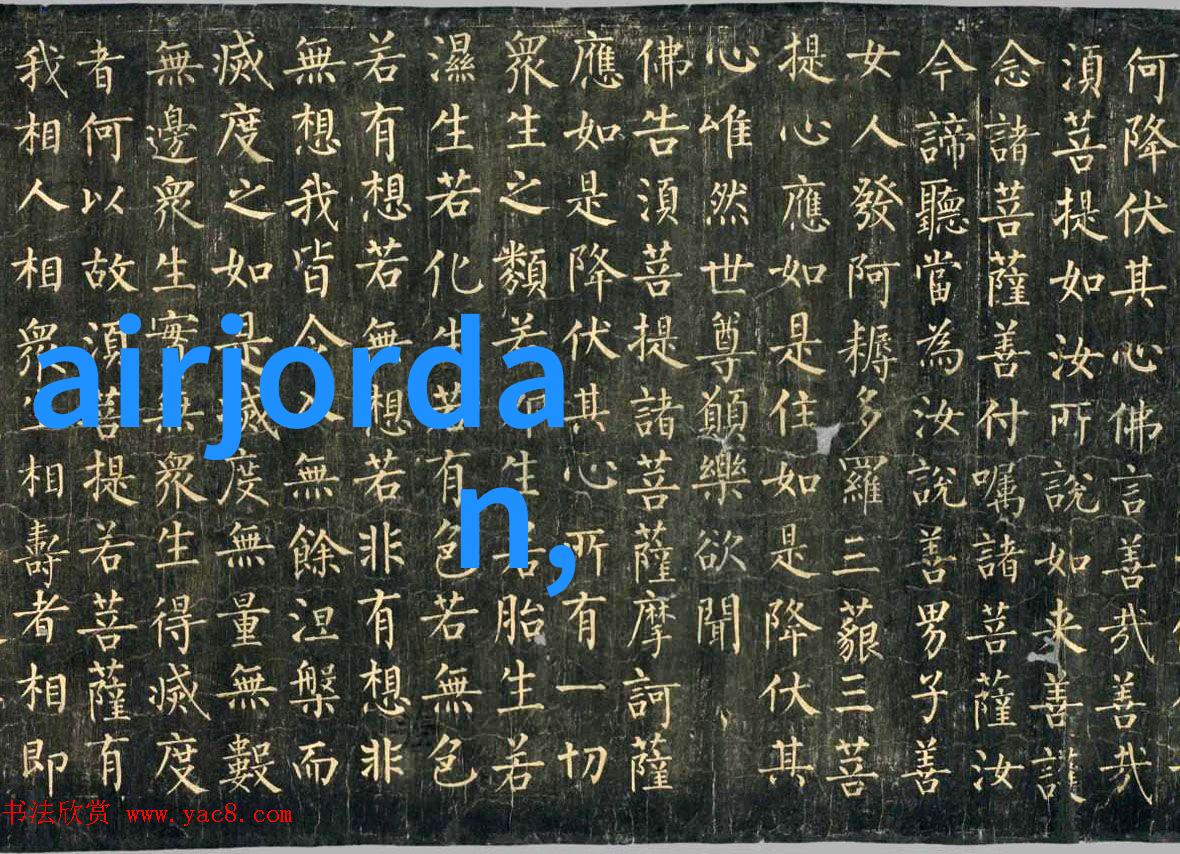 何降伏其心佛言善哉善哉
須菩提如汝所說如来善護
念諸菩薩善付囑諸菩薩汝
今諦聽當為汝說善男子善
女人發阿耨多羅三藐三菩
提心應如是住如是降伏其
心唯然世尊顚樂欲聞
佛告須菩提諸菩薩摩訶薩
應如是降伏其心所有一切
衆生之類若卵生若胎生若
濕生若化生若有色若無色
若有想若無想若非有想非
無想我皆令入無餘涅槃而
滅度之如是滅度無量無數
無邊衆生實無衆生得滅度
者何以故須菩提若菩薩有
我相人相衆生相壽者相即
airjorda
n,
书法欣赏 www.yac8.com